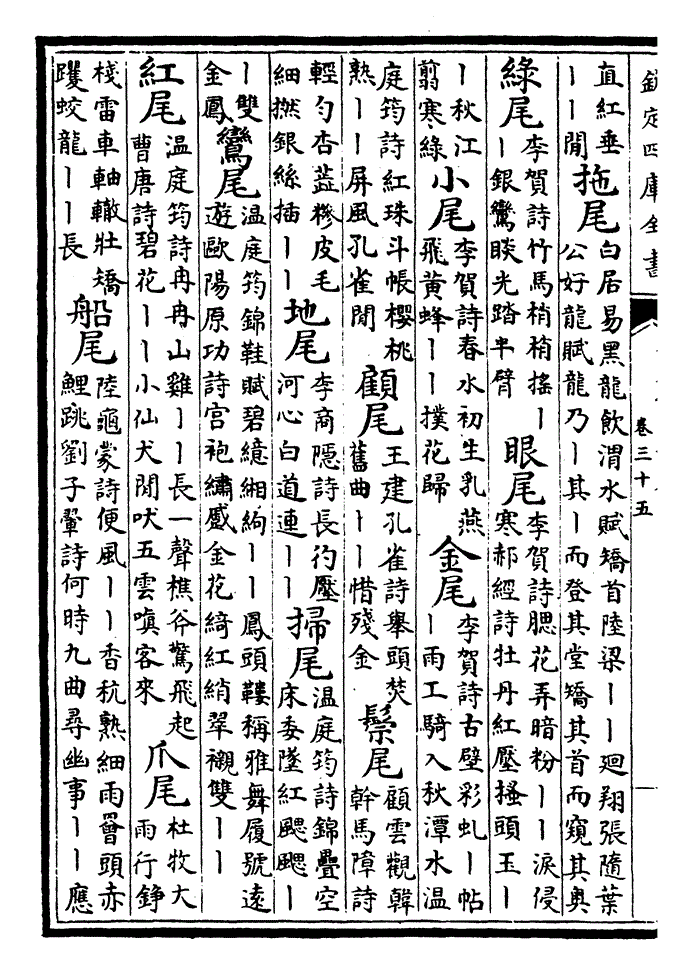 欽定四庫全書
卷三十五
直紅垂丨丨閒 拖尾 白居易黑龍飲渭水賦矯首陸梁丨丨廻翔張隨葉公好龍賦龍乃丨其丨而登其堂矯其首而窺其奥
綠尾 李賀詩竹馬梢梢搖丨丨銀鸞睒光踏半臂 眼尾 李賀詩腮花弄暗粉丨丨淚侵寒郝經詩牡丹紅壓搔頭玉丨
丨秋江翦寒綠 小尾 李賀詩春水初生乳燕飛黄蜂丨丨撲花歸 金尾 李賀詩古壁彩虬丨帖丨雨工騎入秋潭水温
庭筠詩紅珠斗帳櫻桃熟丨丨屏風孔雀閒 顧尾 王建孔雀詩舉頭焚舊曲丨丨惜殘金 鬃尾 顧雲觀韓幹馬障詩
輕勺杏蕋糁皮毛細撚銀絲插丨丨 地尾 李商隱詩長彴壓河心白道連丨丨 掃尾 温庭筠詩錦疊空床委墜紅颸颸丨
丨雙金鳳 鸞尾 温庭筠錦鞋賦碧繶緗絇丨丨鳳頭鞻稱雅舞履號逺遊歐陽原功詩宫袍繡蹙金花綺紅綃翠襯雙丨丨
紅尾 温庭筠詩冉冉山雞丨丨長一聲樵斧驚飛起曹唐詩碧花丨丨小仙犬閒吠五雲嗔客來 爪尾 杜牧大雨行錚
棧雷車軸轍壯矯躩蛟龍丨丨長 船尾 陸龜蒙詩便風丨丨香秔熟細雨罾頭赤鯉跳劉子翬詩何時九曲尋幽事丨丨應